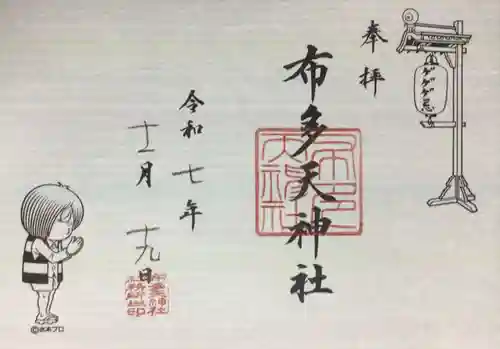 奉拝
ゲゲゲ忌
布多天神社
令和七年
十一月十九日
©水木プロ